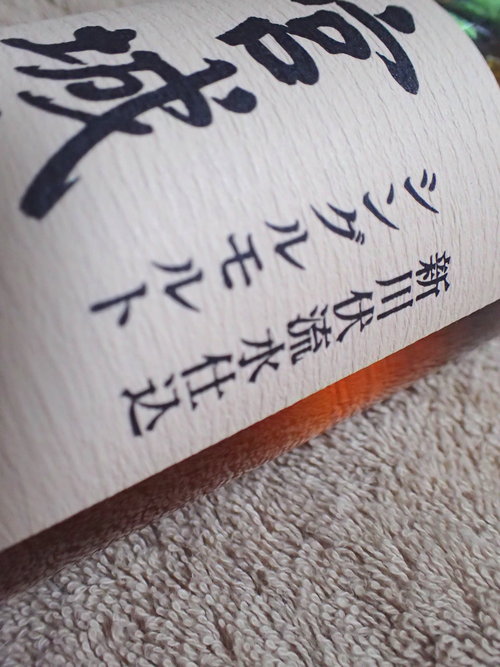 宮城
シングルモルト
新川伏流水仕込